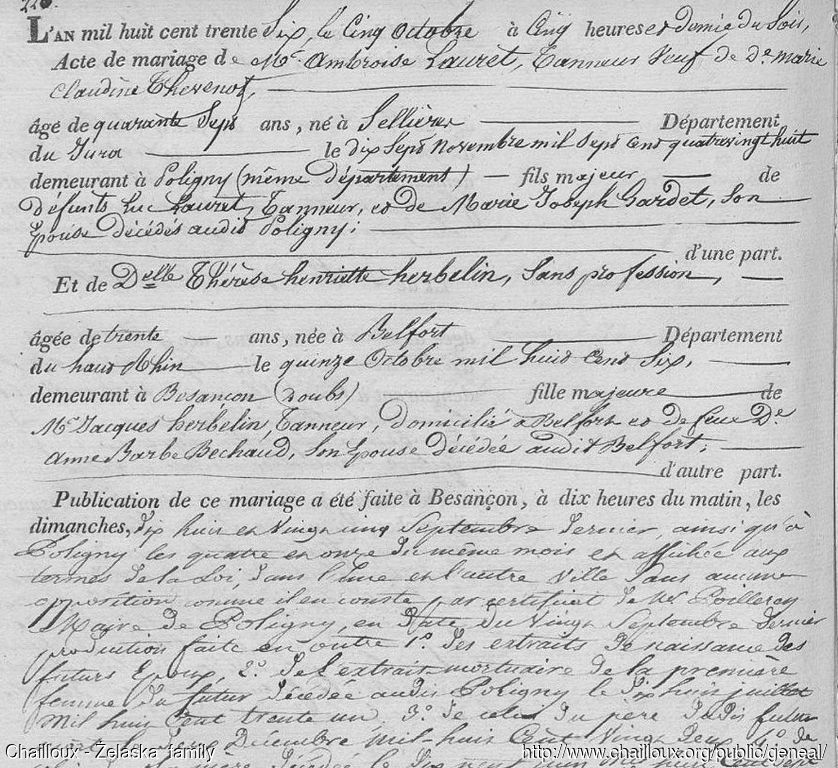 L'AN mil huit cent trente Six, le Cinq Octobre à Cinq heures et demie du Soir,
Acte de mariage de Mr. Ambroise Lauret, Tanneur Veuf de De. marie
Claudine Thevenot,
âgé de quarante Sept ans, né à Sellières Département
du Jura le dix Sept novembre mil Sept Cent quatrevingt huit
demeurant à Poligny (même département) fils majeur de
défunts Luc Lauret, Tanneur, et de Marie Joseph Gardet, Son
Epouse décédés audit Poligny;
d'une part.
Et de Delle Thérèse henriette herbelin, Sans profession,
âgée de trente ans, née à Belfort Département
du haut Rhin le quinze Octobre mil huit Cent Six,
demeurant à Besançon (doubs) fille majeure de
Mr. Jacques herbelin, Tanneur, domicilié à Belfort et de feue De.
Anne Barbe Bechaud, Son Epouse décédée audit Belfort;
d'autre part.
Publication de ce mariage a été faite à Besançon, à dix heures du matin, les
dimanches, dix huit et Vingt cinq Septembre dernier, ainsi qu'à
Poligny les quatre et onze du même mois et affichée aux
termes de la Loi, dans l'une et l'autre Ville Sans aucune
opposition comme il en conste par certificat de Mr
Maire de Poligny en date du Vingt Septembre dernier
production faite en outre 1°. des extraits de naissance des
futurs Epoux, 2°. de l'extrait mortuaire de la première
femme du futur décédée audit Poligny le dix huit juillet
mil huit Cent trente un, 3°. de celui du père du dit futur
Décembre mil huit Cent Vingt Deux, 4°. de
mil huit Cent
Chailloux - Zelaska family
http://www.chailloux.org/public/geneal/